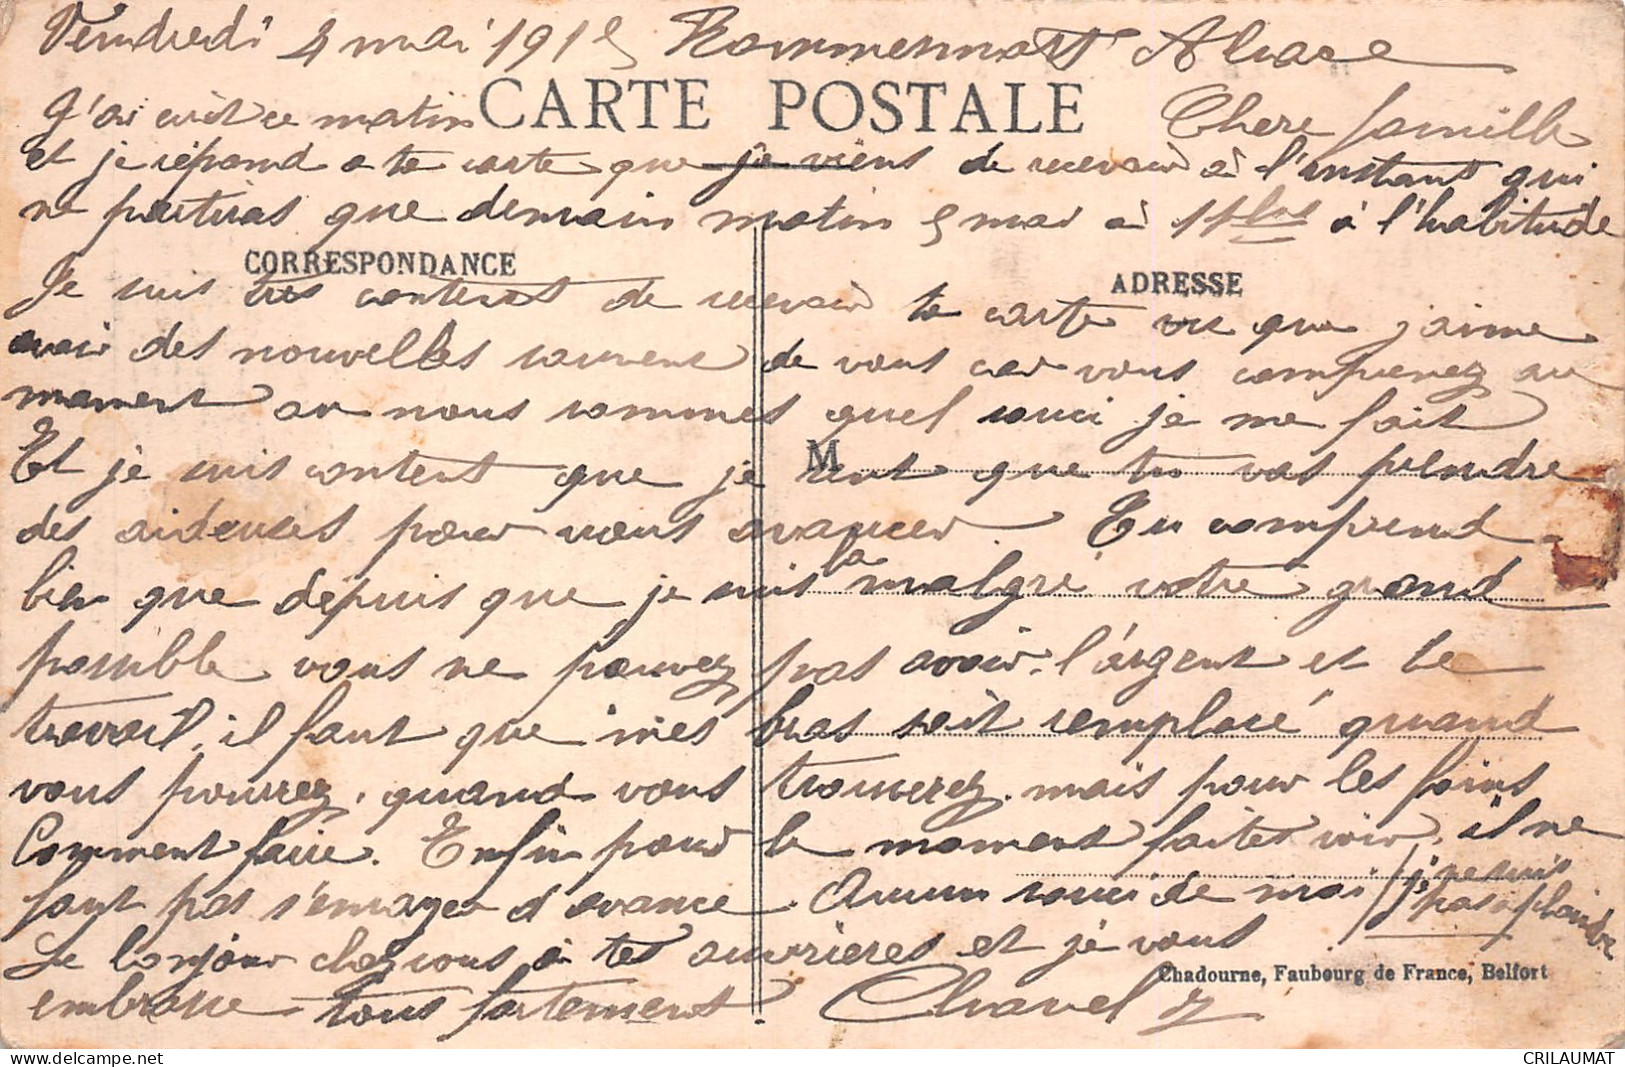 Vendredi 4 mai 191 Alsace
CARTE POSTALE
J'ai écrit ce matin Chere famille
et je répond a ta carte que je viens de recevoir à l'instant qui
ne partiras que demain matin 5 mai à 11 hrs à l'habitude
CORRESPONDANCE
ADRESSE
Je suis tres content de recevoir ta carte vu que j'aime
avoir des nouvelles souvent de vous car vous comprenez au
moment ou nous sommes quel souci je me fait
M
Et je suis content que je sent que tu vas prendre
des aideuses pour vous avancer. Tu comprend
bien que depuis que je suis la malgré votre grand
possible vous ne pouvez pas avoir l'argent et le
travail, il faut que mes bras soit remplacé quand
vous pourrez, quand vous trouverez. mais pour les foins
Comment faire. Enfin pour le moment faites voir, il ne
faut pas s'enrayer d'avance. Aucun souci de moi je ne suis
pas a plaindre
Le bonjour chez vous à tes ouvrières et je vous
embrasse tous fortement. Chavel
Chadourne, Faubourg de France, Belfort
CRILAUMAT